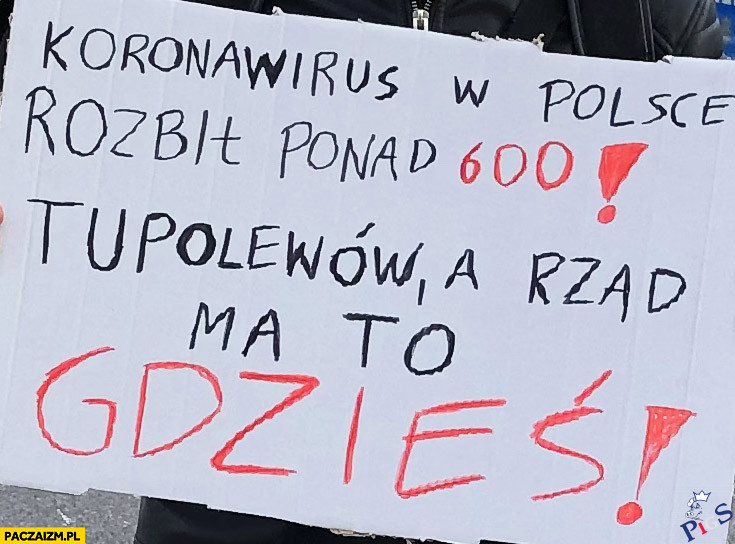 KORONAWIRUS W POLSCE
ROZBIŁ PONAD 600!
TUPOLEWÓW, A RZĄD
MA TO
GDZIEŚ!
PiS
PACZAIZM.PL